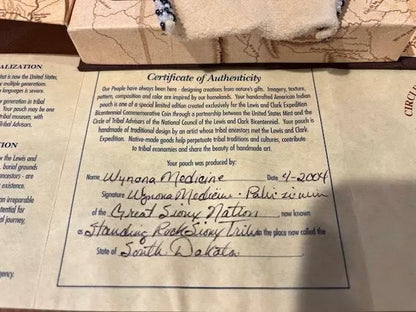 ALIZATION
at is now the United States,
multiple generations.
languages is severe.
generation in tribal
Your pouch may be one
tribal museum, with
Tribal Advisors.
ION
the Lewis and
burial grounds,
ancestors - are
existence.
an irreparable
potential for
al journey,
gency.
Certificate of Authenticity
Our People have always been here - designing creations from nature's gifts. Imagery, texture,
pattern, composition and color are inspired by our homelands. Your handcrafted American Indian
pouch is one of a special limited edition created exclusively for the Lewis and Clark Expedition
Bicentennial Commemorative Coin through a partnership between the United States Mint and the
Circle of Tribal Advisors of the National Council of the Lewis and Clark Bicentennial. Your pouch is
handmade of traditional design by an artist whose tribal ancestors met the Lewis and Clark
Expedition. Native-made goods help perpetuate tribal traditions and cultures, contribute
to tribal economies and share the beauty of handmade art.
Your pouch was produced by:
Name Wynona Medicine Date 4-2004
Signature Wynona Medicine
of the Great Sioux Nation now known
as Standing Rock Sioux Tribe in the place now called the
State of South Dakota